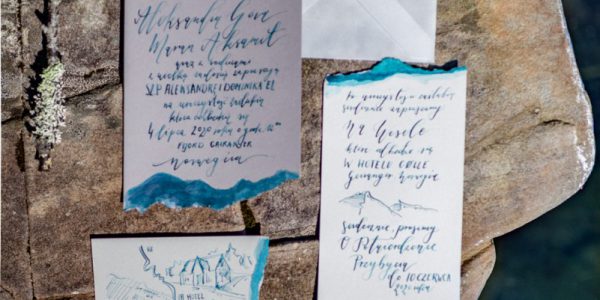 Aleksandra Gosz
Marcin
wraz z rodzicami
z wielką radością zapraszają
SZ.P. ALEKSANDRĘ I DOMINIKA EL
na uroczystość zaślubin
która odbędzie się
4 lipca 2020 roku o godz.
FIORD GEIRANGER
Norwegia
Po uroczystości zaślubin
serdecznie zapraszamy
Na Wesele
które odbędzie się
W HOTELU
Geiranger Norwegia
Serdecznie prosimy
O Potwierdzenie
Przybycia
do 10 CZERWCA
2020 roku
HOTEL